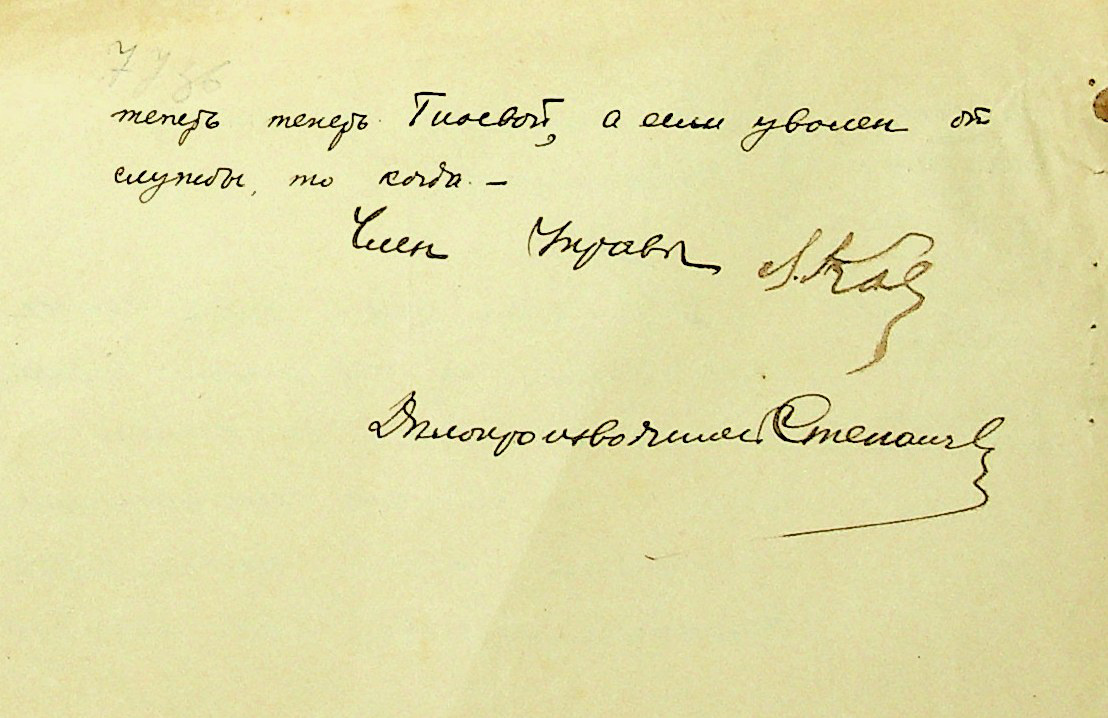 теперь теперь Гиоевой, а если уволен от
службы, то когда —
Член Управы
Делопроизводитель